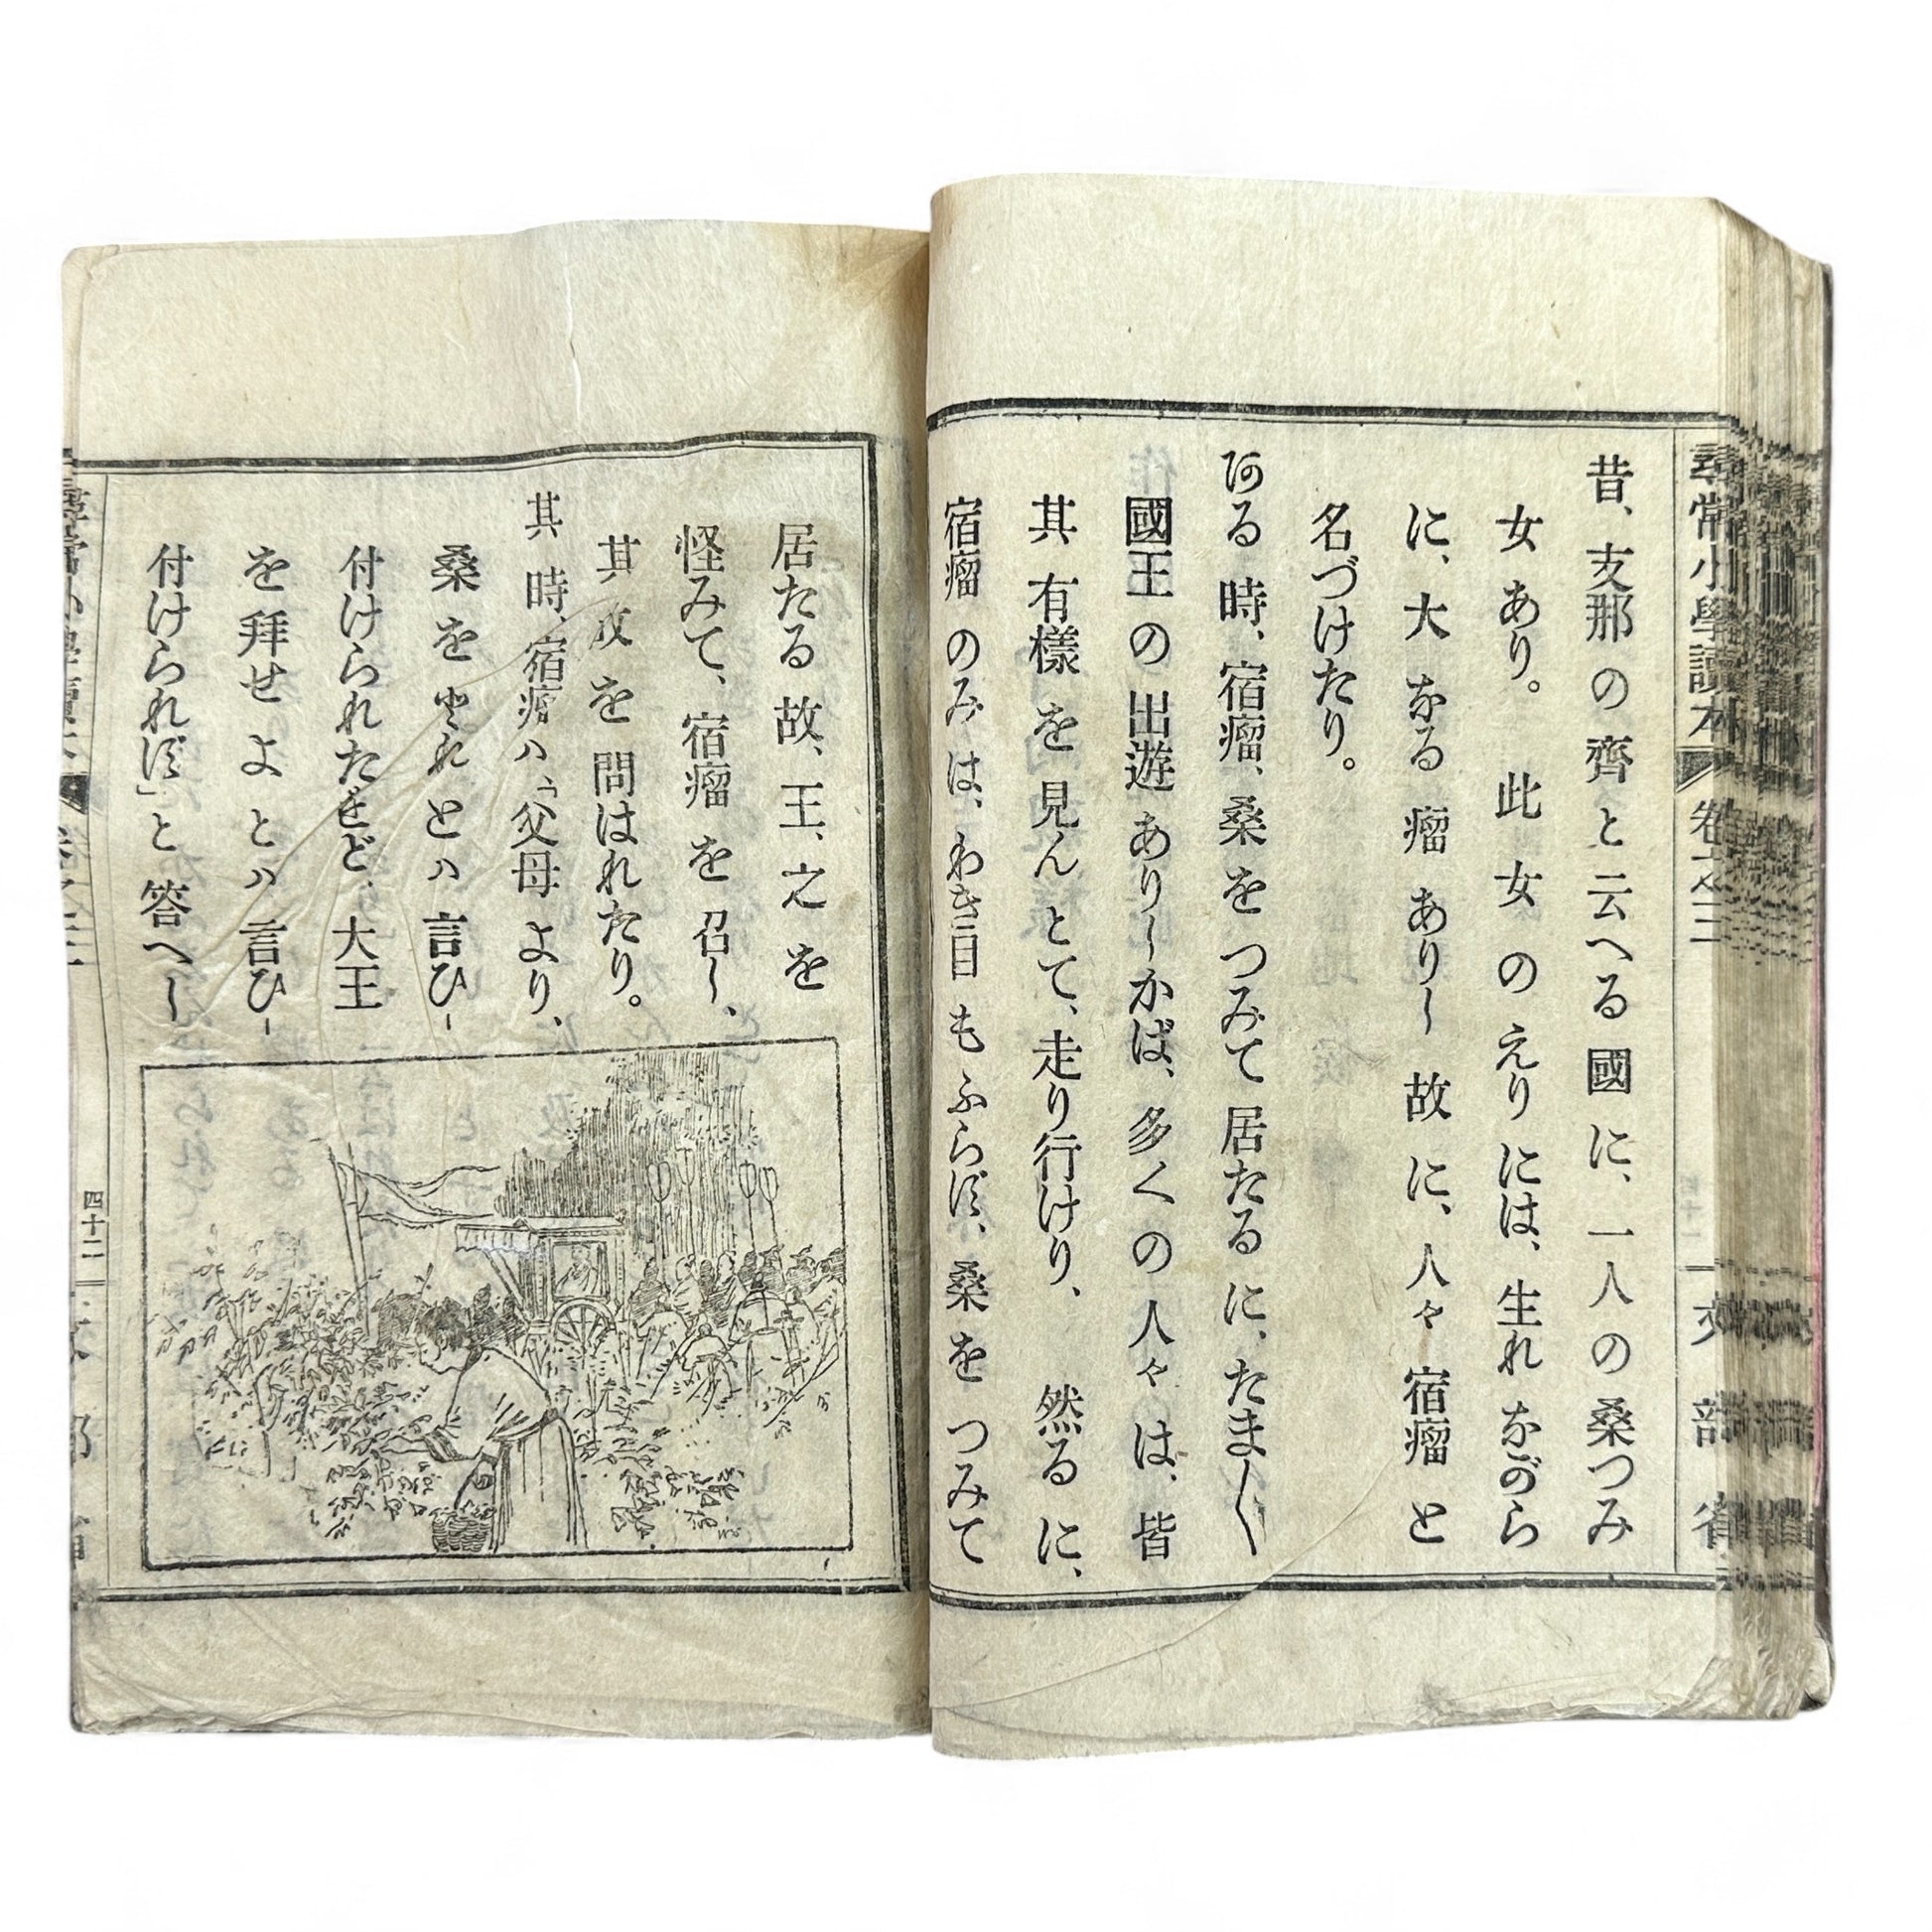 尋常小學讀本 卷之三 文部省
昔、支那の齊と云へる國に、一人の桑つみ
女あり。此女のえりには、生れながら
に、大なる瘤ありし故に、人々宿瘤と
名づけたり。
或る時、宿瘤、桑をつみて居たるに、たま〱
國王の出遊ありしかば、多くの人々は、皆
其有樣を見んとて、走り行けり、然るに、
宿瘤のみは、わき目もふらず、桑をつみて
居たる故、王、之を
怪みて、宿瘤を召し、
其故を問はれたり。
其時、宿瘤ハ、「父母より、
桑をとれとハ言ひ
付けられたれど、大王
を拜せよとハ言ひ
付けられず」と答へし
四十二